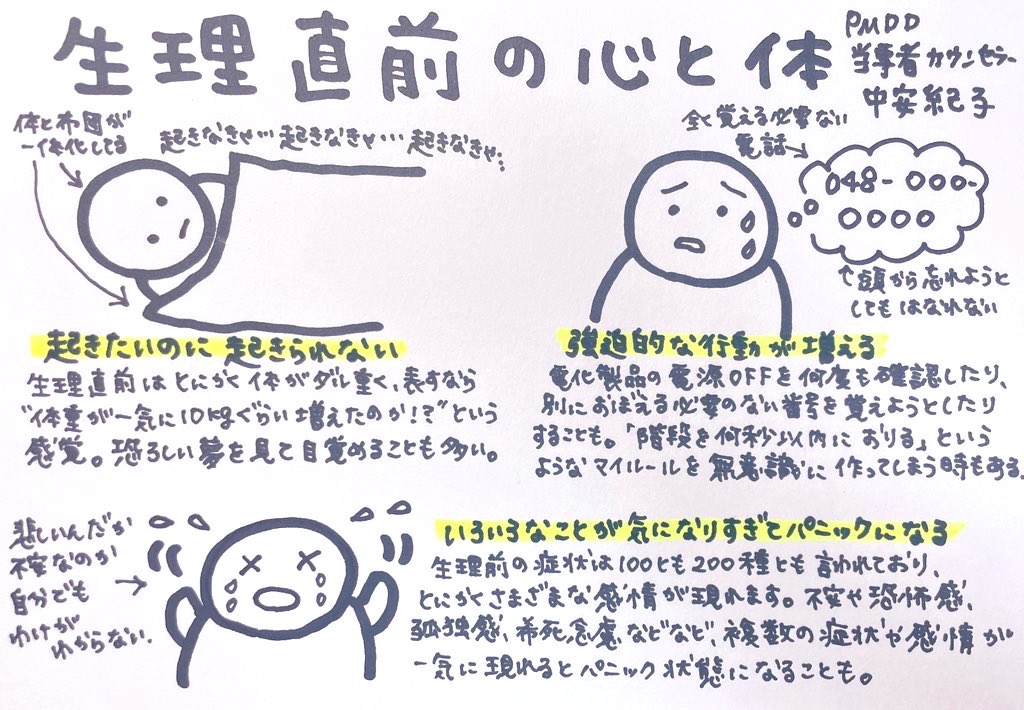 生理直前の心と体
PMDD
当事者カウンセラー
中安紀子
体と布団が
一体化してる
起きなきゃ…起きなきゃ…起きなきゃ…
全く覚える必要ない
電話→
048-000-
0000
↑頭から忘れようと
してもはなれない
起きたいのに起きられない
生理直前はとにかく体がダル重く、表すなら
"体重が一気に10kgぐらい増えたのか!?"という
感覚。恐ろしい夢を見て目覚めることも多い。
強迫的な行動が増える
電化製品の電源OFFを何度も確認したり、
別におぼえる必要のない番号を覚えようとしたり
することも。「階段を何秒以内におりる」という
ようなマイルールを無意識に作ってしまう時もある。
悲しいんだか
不安なのか
自分でも
わけが
わからない.
いろいろなことが気になりすぎてパニックになる
生理前の症状は100とも200種とも言われており、
とにかくさまざまな感情が現れます。不安や恐怖感、
孤独感、希死念慮などなど、複数の症状や感情が
一気に現れるとパニック状態になることも。